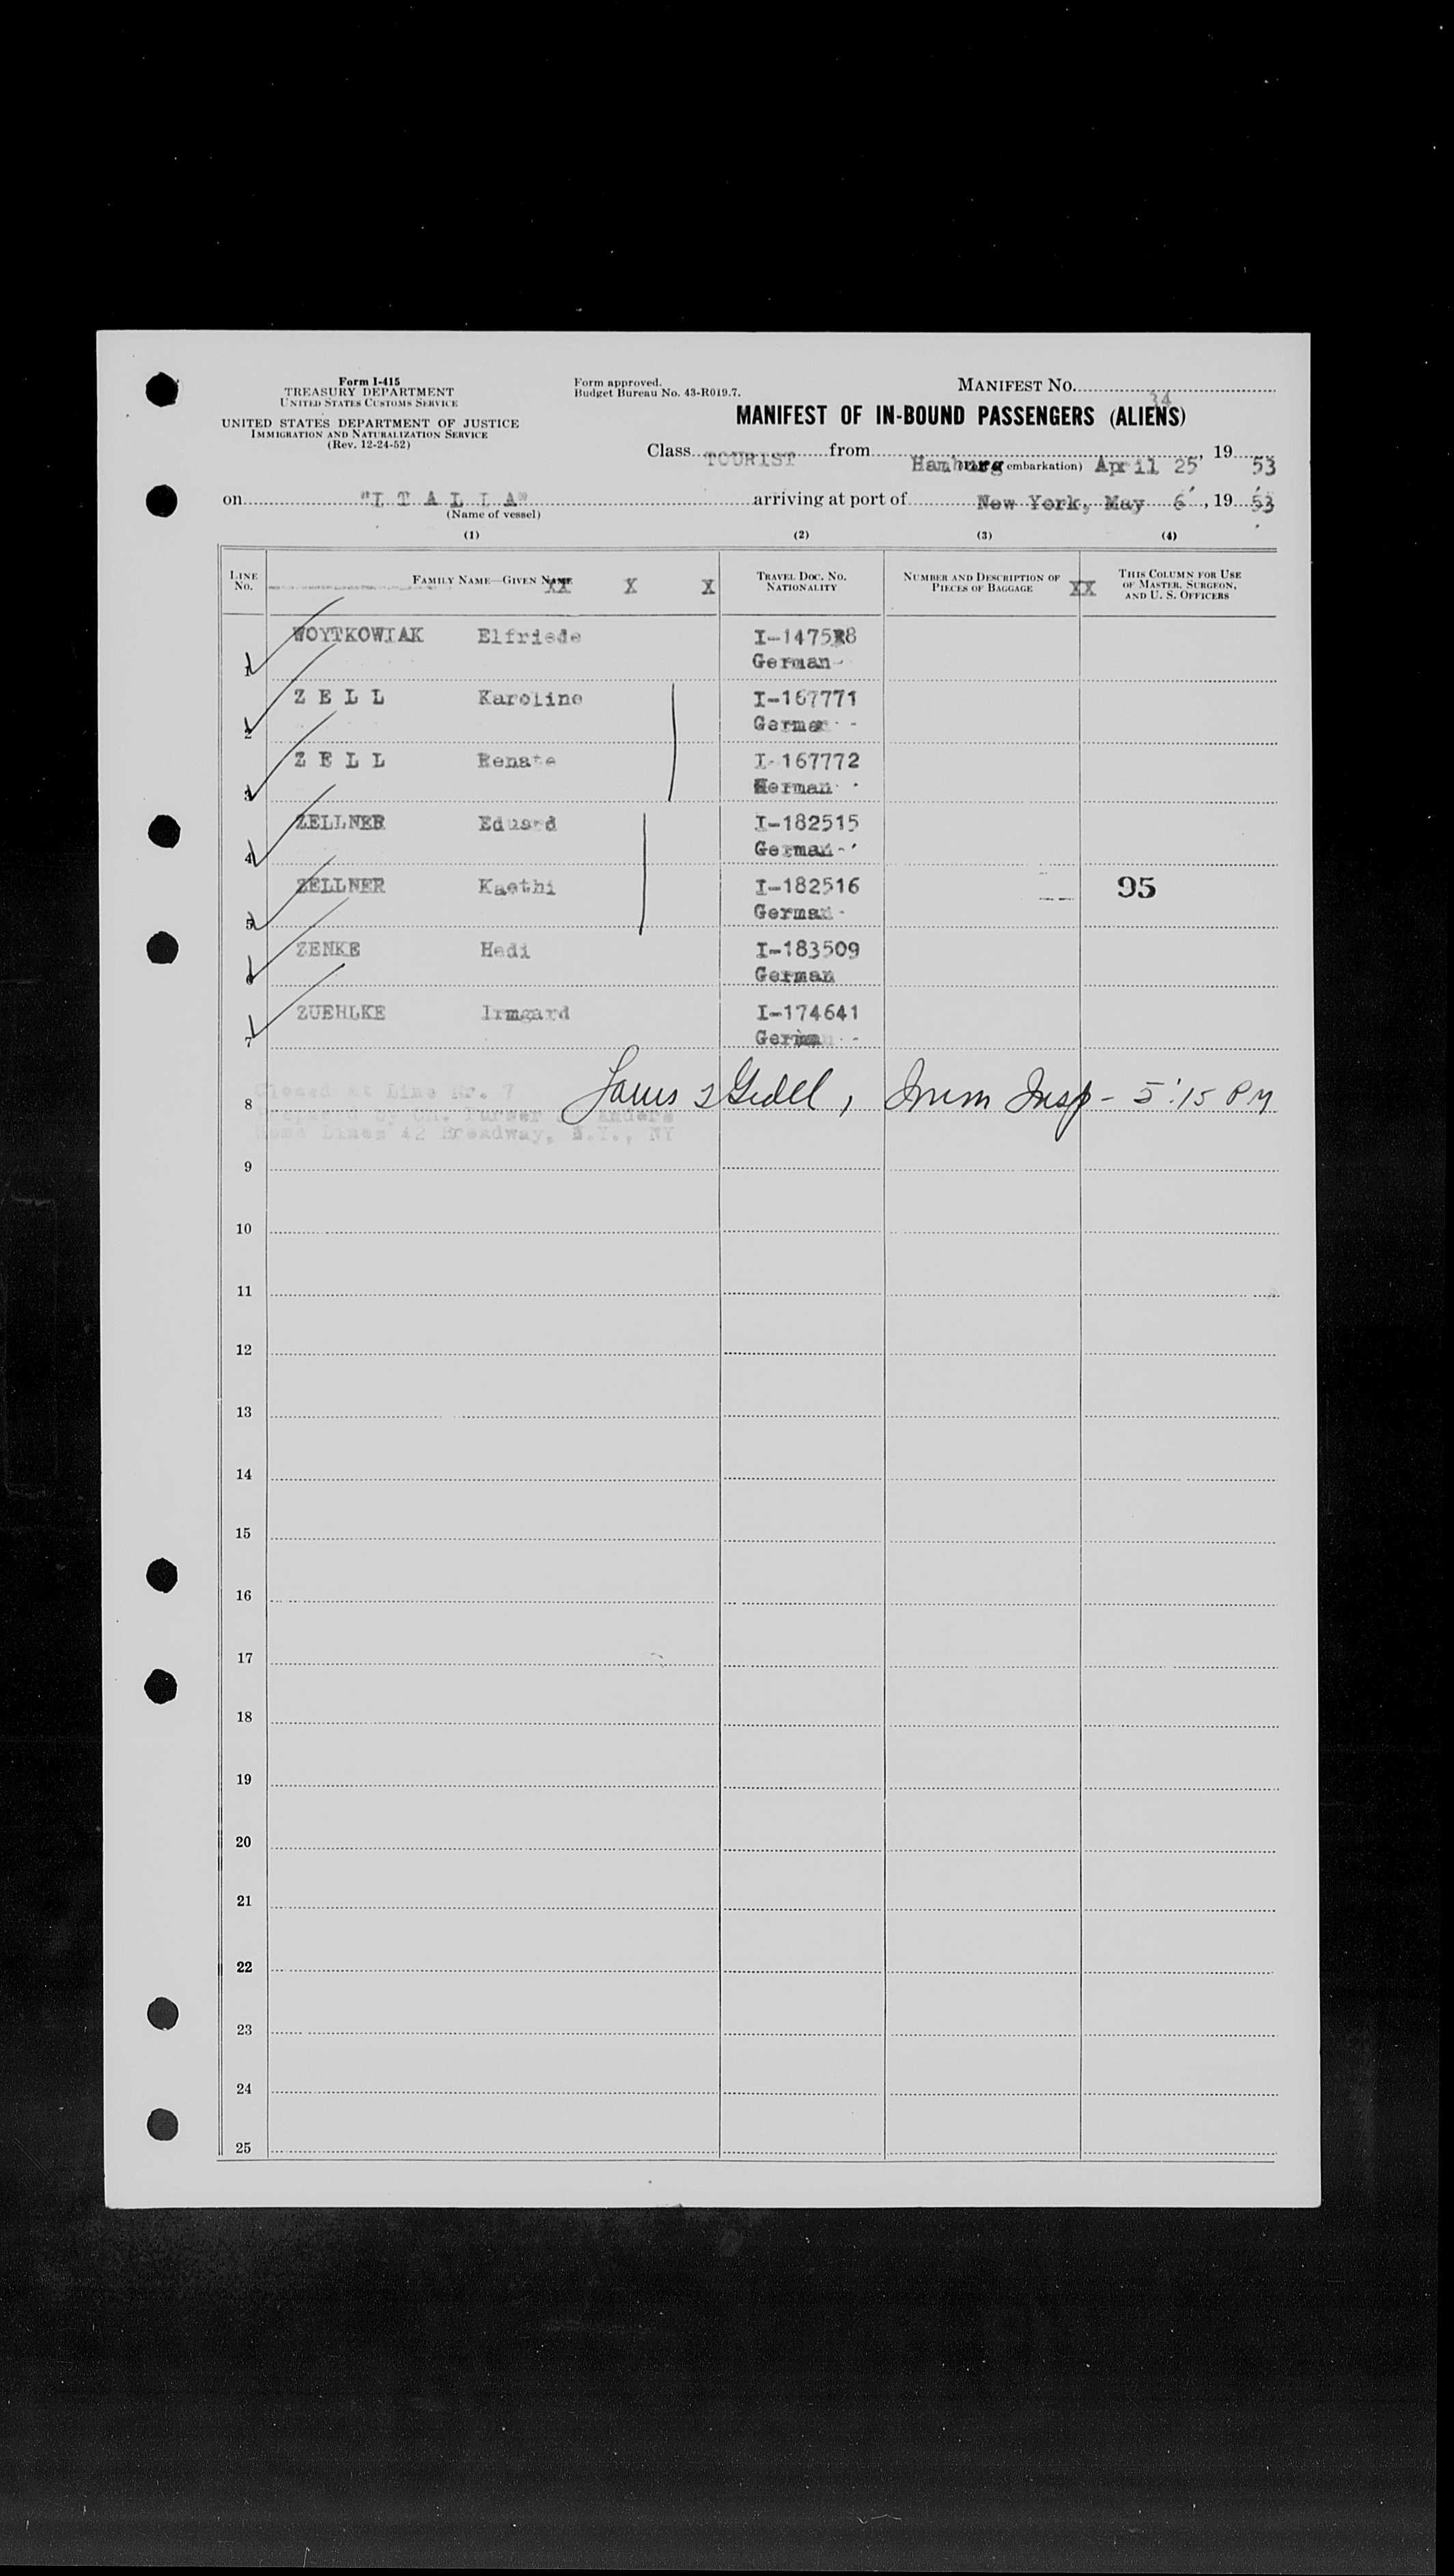 Form I-415
TREASURY DEPARTMENT
UNITED STATES CUSTOMS SERVICE
UNITED STATES DEPARTMENT OF JUSTICE
IMMIGRATION AND NATURALIZATION SERVICE
(Rev. 12-24-52)
Form approved.
Budget Bureau No. 43-R019.7.
MANIFEST No.
34
MANIFEST OF IN-BOUND PASSENGERS (ALIENS)
Class TOURIST from Hamburg embarkation) April 25, 19 53
on "I T A L I A" arriving at port of New York, May 6, 19 53
(Name of vessel)
(1) (2) (3) (4)
LINE No. FAMILY NAME—GIVEN NAME XX X X TRAVEL DOC. NO. NATIONALITY NUMBER AND DESCRIPTION OF PIECES OF BAGGAGE XX THIS COLUMN FOR USE OF MASTER, SURGEON, AND U. S. OFFICERS
1 WOYTKOWIAK Elfriede
German
2 Z E L L Karoline I-167771
German
3 Z E L L Renate I-167772
German
4 ZELLNER Eduard I-182515
German
5 ZELLNER Kaethi I-182516 95
German
6 ZENKE Hedi I-183509
German
7 ZUEHLKE Irmgard I-174641
German
Closed at Line Nr. 7
8 Imm Insp - 5:15 PM
Prepared by Ch. Turner
Home Lines 42 Broadway, N.Y., NY
9
10
11
12
13
14
15
16
17
18
19
20
21
22
23
24
25